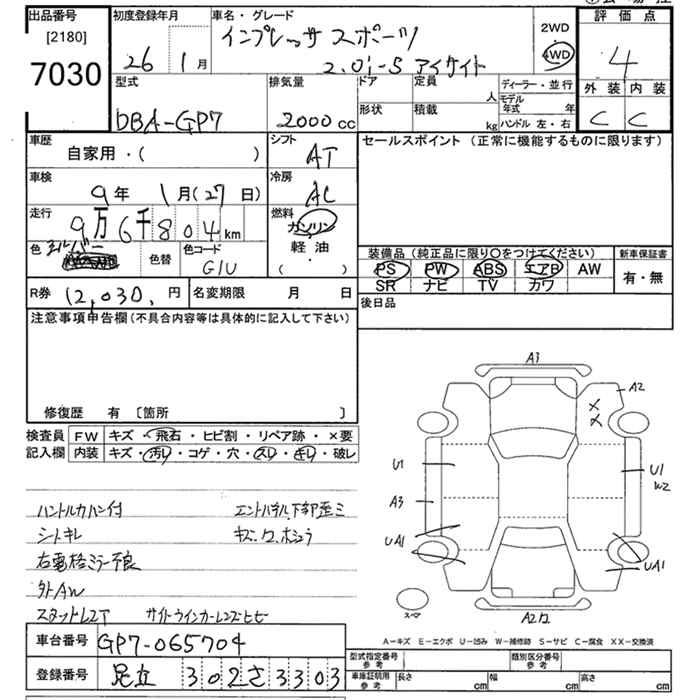 出品番号
[2180]
7030
初度登録年月
26 1月
車名・グレード
インプレッサスポーツ
2.0i-S アイサイト
2WD
4WD
評価点
4
外装 内装
C C
型式
DBA-GP7
排気量
2000cc
ドア
定員
人
形状
積載
kg
ディーラー・並行
モデル年式
年
ハンドル 左・右
車歴
自家用・( )
シフト
AT
車検
9年 1月(27日)
冷房
AC
走行
9万6千804km
燃料
ガソリン
軽油
( )
色
シルバー
色替
色コード
G1U
セールスポイント(正常に機能するものに限ります)
装備品(純正品に限り○をつけてください)
PS PW ABS エアB AW
SR ナビ TV カワ
新車保証書
有・無
後日品
R券 12,030.円
名変期限 月 日
注意事項申告欄(不具合内容等は具体的に記入して下さい)
修復歴 有〔箇所 〕
検査員
記入欄
FW キズ・飛石・ヒビ割・リペア跡・×要
内装 キズ・汚れ・コゲ・穴・スレ・キレ・破レ
ハンドルカバー付
エンドパネル下部歪ミ
シートキレ
キズ.ワ.ホショウ
右電格ミラー不良
外AW
スタッドレスT
サイドウインカーレンズヒビ
A3
A2
U1
A3
UA1
U1
W2
UA1
スペア
A2
A=キズ E=エクボ U=凹み W=補修跡 S=サビ C=腐食 XX=交換済
車台番号
GP7-065704
登録番号
足立 302 さ 3303
型式指定番号
参考
類別区分番号
参考
車庫証明用
参考
長さ cm
幅 cm
高さ cm